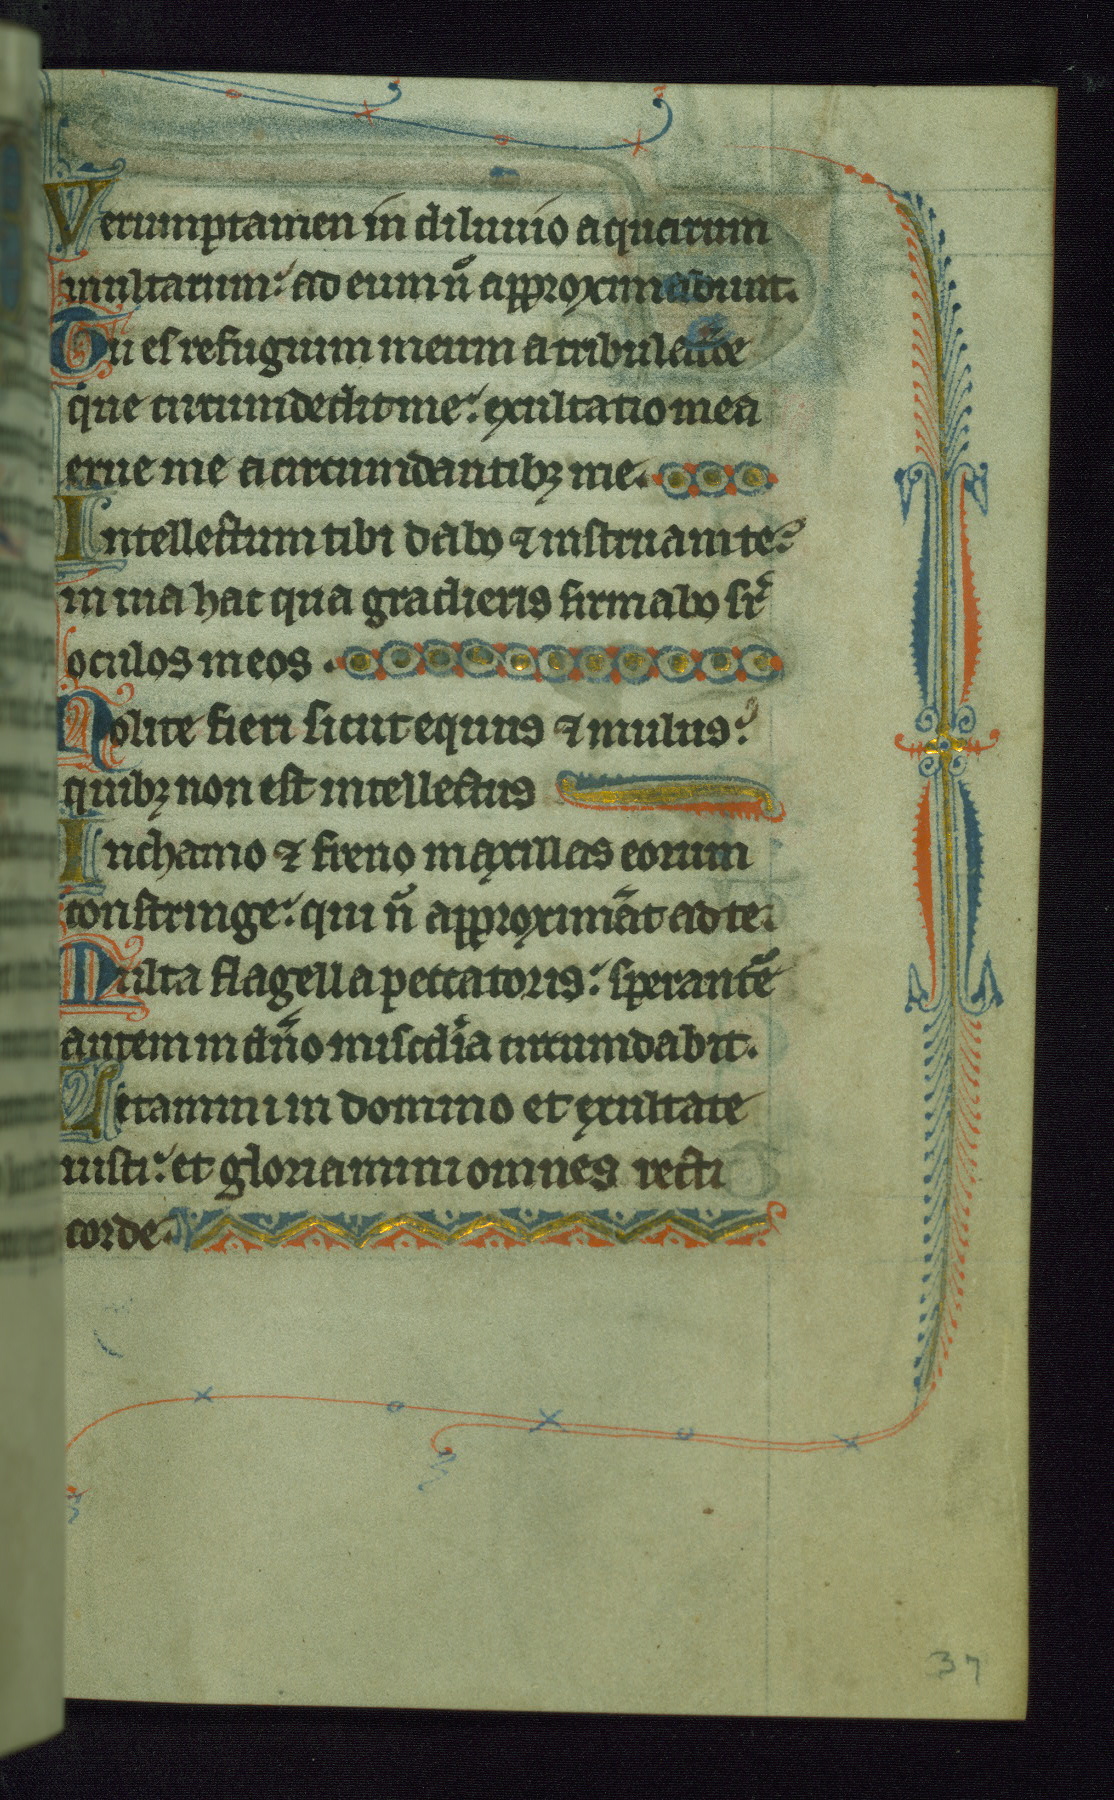 Verumptamen in diluuio aquarum
multarum: ad eum n̄ approximabunt.
Tu es refugium meum a tribulatōe
que circumdedit me: exultatio mea
erue me a circumdantibꝫ me.
Intellectum tibi dabo ⁊ instruam te:
in uia hac qua gradieris firmabo sr̄
oculos meos.
Nolite fieri sicut equus ⁊ mulus:
quibꝫ non est intellectus
In chamo ⁊ freno maxillas eorum
constringe: qui n̄ approximāt ad te.
Multa flagella peccatoris: sperantē
autem in dn̄o miscd̄ia circumdabit.
Letamini in domino et exultate
iusti: et gloriamini omnes recti
corde.
37